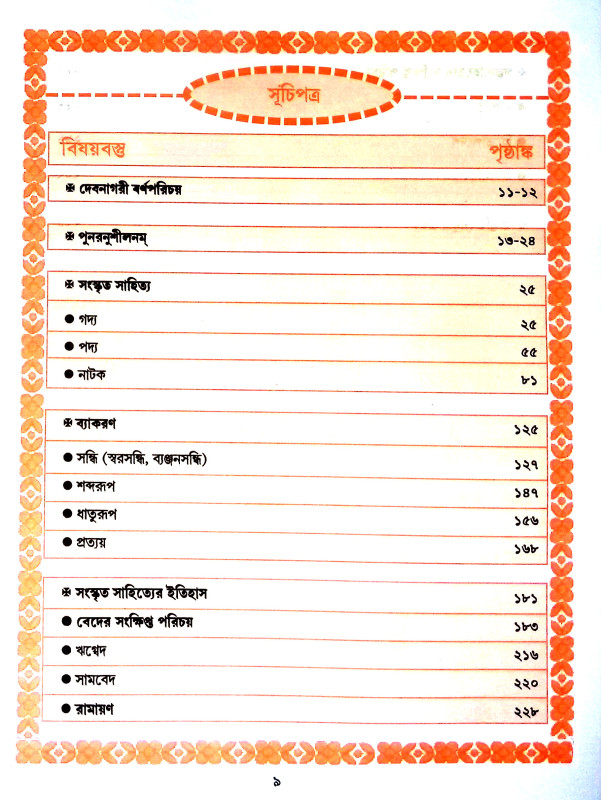 সূচিপত্র
বিষয়বস্তু পৃষ্ঠাঙ্ক
✠ দেবনাগরী বর্ণপরিচয় ১১-১২
✠ পুনরনুশীলনম্ ১৩-২৪
✠ সংস্কৃত সাহিত্য ২৫
● গদ্য ২৫
● পদ্য ৫৫
● নাটক ৮১
✠ ব্যাকরণ ১২৫
● সন্ধি (স্বরসন্ধি, ব্যঞ্জনসন্ধি) ১২৭
● শব্দরূপ ১৪৭
● ধাতুরূপ ১৫৬
● প্রত্যয় ১৬৮
✠ সংস্কৃত সাহিত্যের ইতিহাস ১৮১
● বেদের সংক্ষিপ্ত পরিচয় ১৮৩
● ঋগ্বেদ ২১৬
● সামবেদ ২২০
● রামায়ণ ২২৮
৯